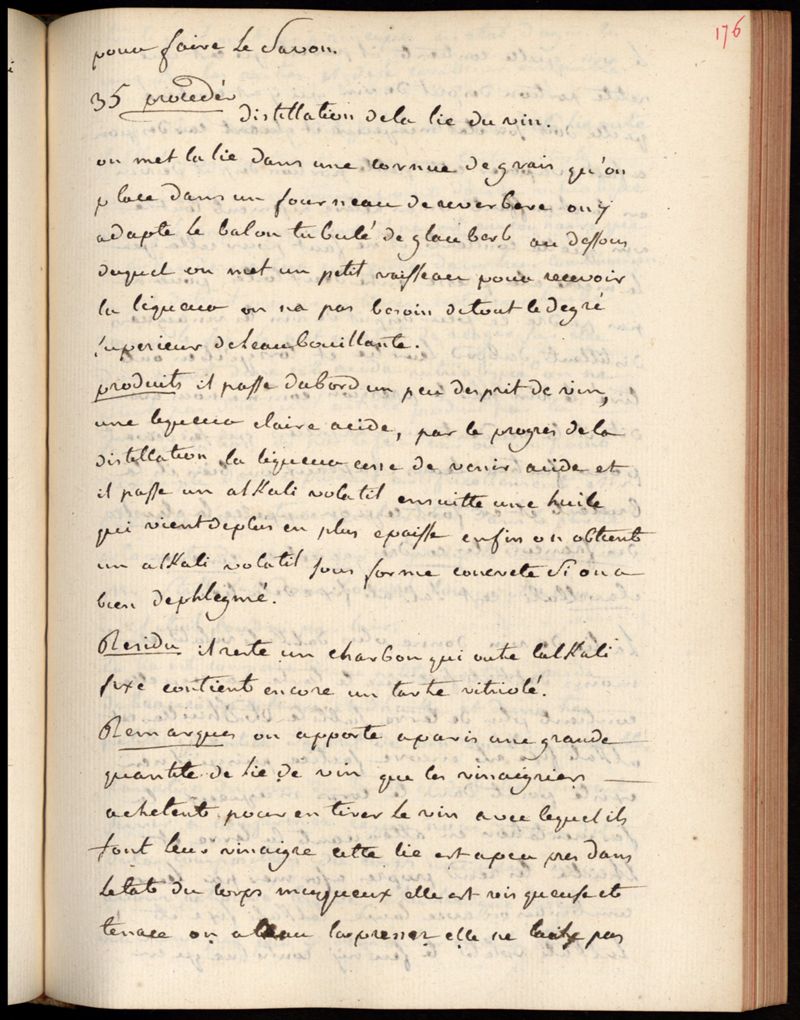 176
pour faire le Savon.
35 procedés
distillation de la lie du vin.
on met la lie dans une cornue de grais qu'on
place dans un fourneau de reverbere on y
adapte le balon tubulé de glauberb au dessous
duquel on met un petit vaisseau pour recevoir
la liqueur on na pas besoin de tout le degré
superieur de leau bouillante.
produits il passe dabord un peu desprit de vin,
une liqueur claire acide, par le progres de la
distillation la liqueur cesse de venir acide et
il passe un alkali volatil ensuitte une huile
qui vient de plus en plus epaisse enfin on obtient
un alkali volatil sous forme concrete si on a
bien dephlegmé.
Residu il reste un charbon qui outre lalkali
fixe contient encore un tartre vitriolé.
Remarques on apporte a paris une grande
quantité de lie de vin que les vinaigriers
achetent pour en tirer le vin avec lequel ils
font leur vinaigre cette lie est a peu pres dans
letat du corps muqueux elle est visqueuse et
tenace on a beau la presser elle ne pas